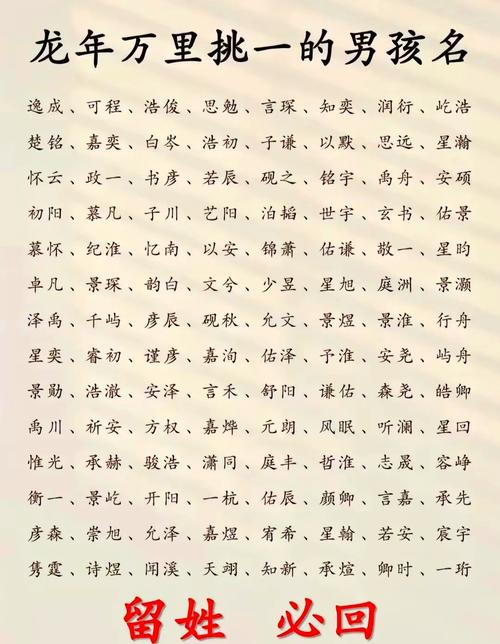 龙年万里挑一的男孩名
逸成、可程、浩俊、思勉、言琛、知奕、润衍、屹浩
楚铭、嘉奕、白岑、浩初、子谦、以默、思远、星瀚
怀云、政一、书彦、若辰、砚之、铭宇、禹舟、安硕
初阳、慕凡、子川、艺阳、泊韬、世宇、玄书、佑景
慕怀、纪淮、忆南、以安、锦萧、佑谦、敬一、星昀
卓凡、景琛、韵白、文兮、少昱、星旭、庭洲、景灏
泽禹、千屿、彦辰、砚秋、允文、景煜、景淮、行舟
星奕、睿初、谨彦、嘉洵、佑泽、予淮、安尧、屿舟
景勋、浩澈、安泽、言禾、舒阳、谦佑、森尧、皓卿
禹川、祈安、方权、嘉烨、元朗、风眠、听澜、星回
惟光、承赫、骏浩、潇同、庭丰、哲淮、志晟、容峥
衡一、景屹、开阳、一杭、佑辰、颜卿、言嘉、承先
彦森、崇旭、允泽、嘉煜、宥希、星翰、若安、宸宇
隽霆、诗煜、闻溪、天翊、知新、承煊、卿时、一珩
留姓 必回